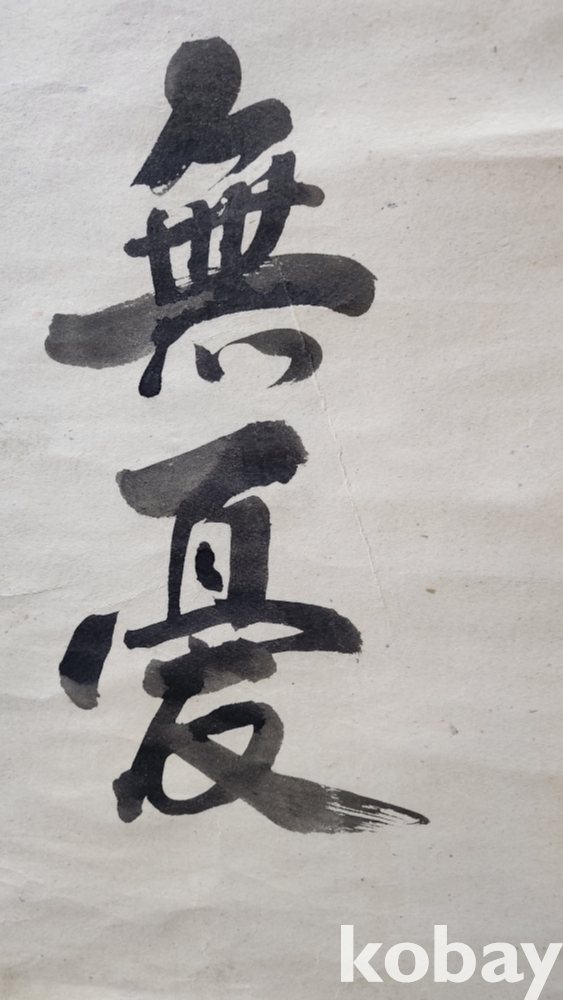 無憂
kobay